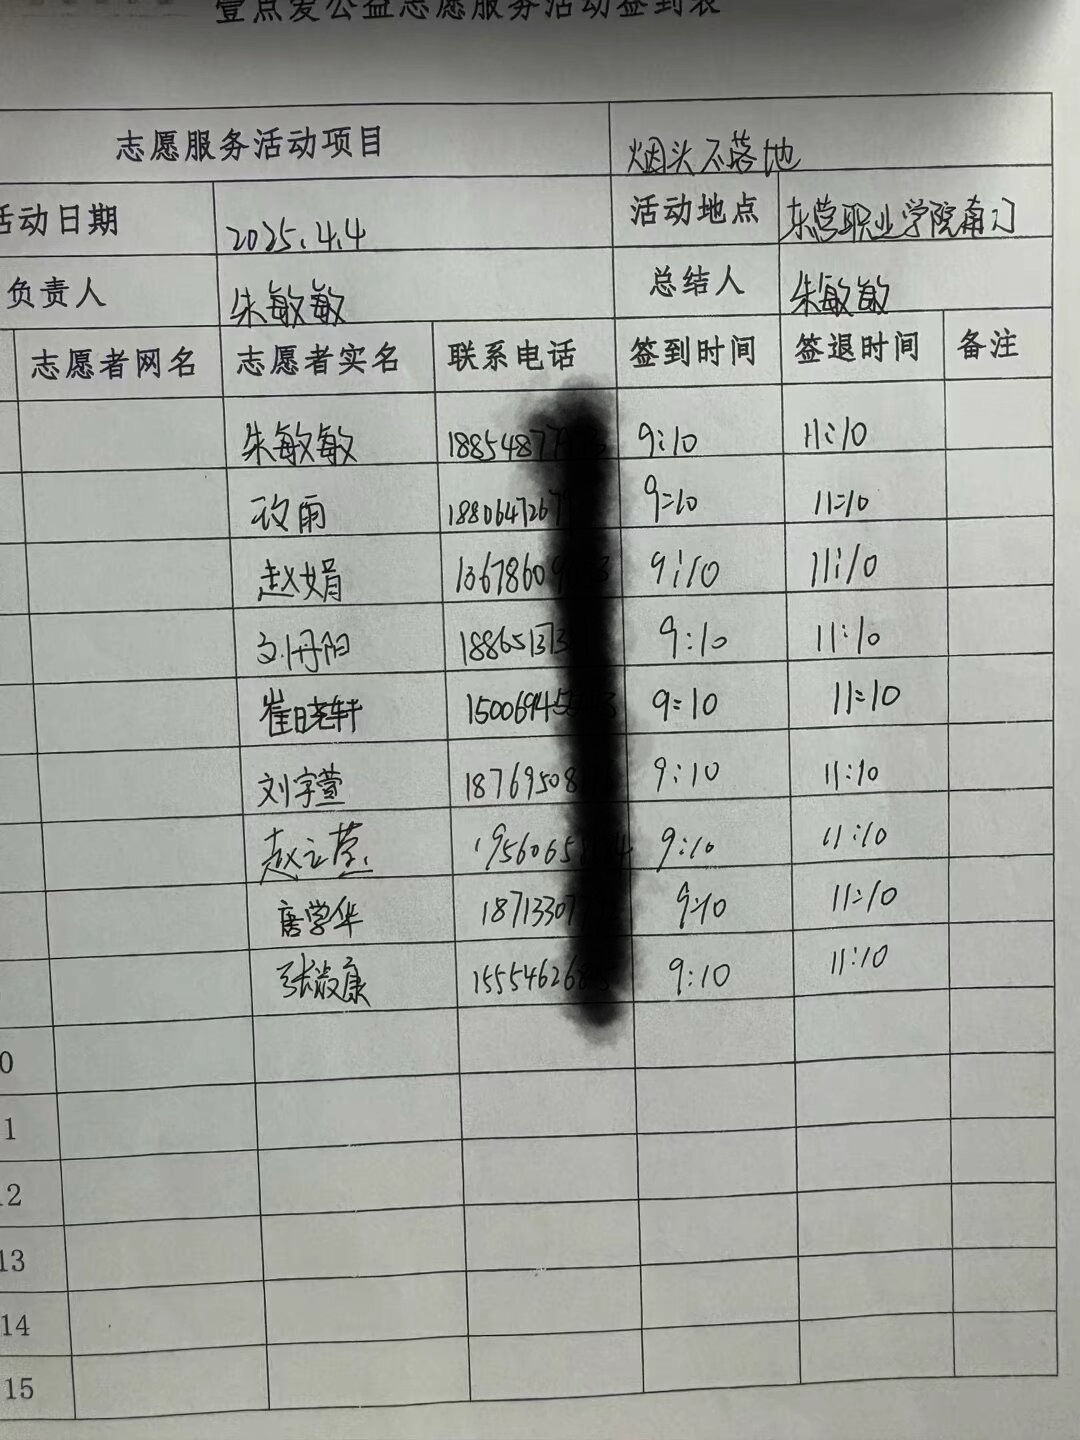 壹点爱公益志愿服务活动签到表
志愿服务活动项目 烟头不落地
活动日期 2025.4.4 活动地点 东营职业学院南门
负责人 朱敏敏 总结人 朱敏敏
志愿者网名 志愿者实名 联系电话 签到时间 签退时间 备注
朱敏敏 9:10 11:10
玫雨 9:10 11:10
赵娟 9:10 11:10
刘丹阳 9:10 11:10
崔晓轩 9:10 11:10
刘宇萱 9:10 11:10
赵云莹 9:10 11:10
唐学华 9:10 11:10
张淑康 9:10 11:10
0
1
12
13
14
15